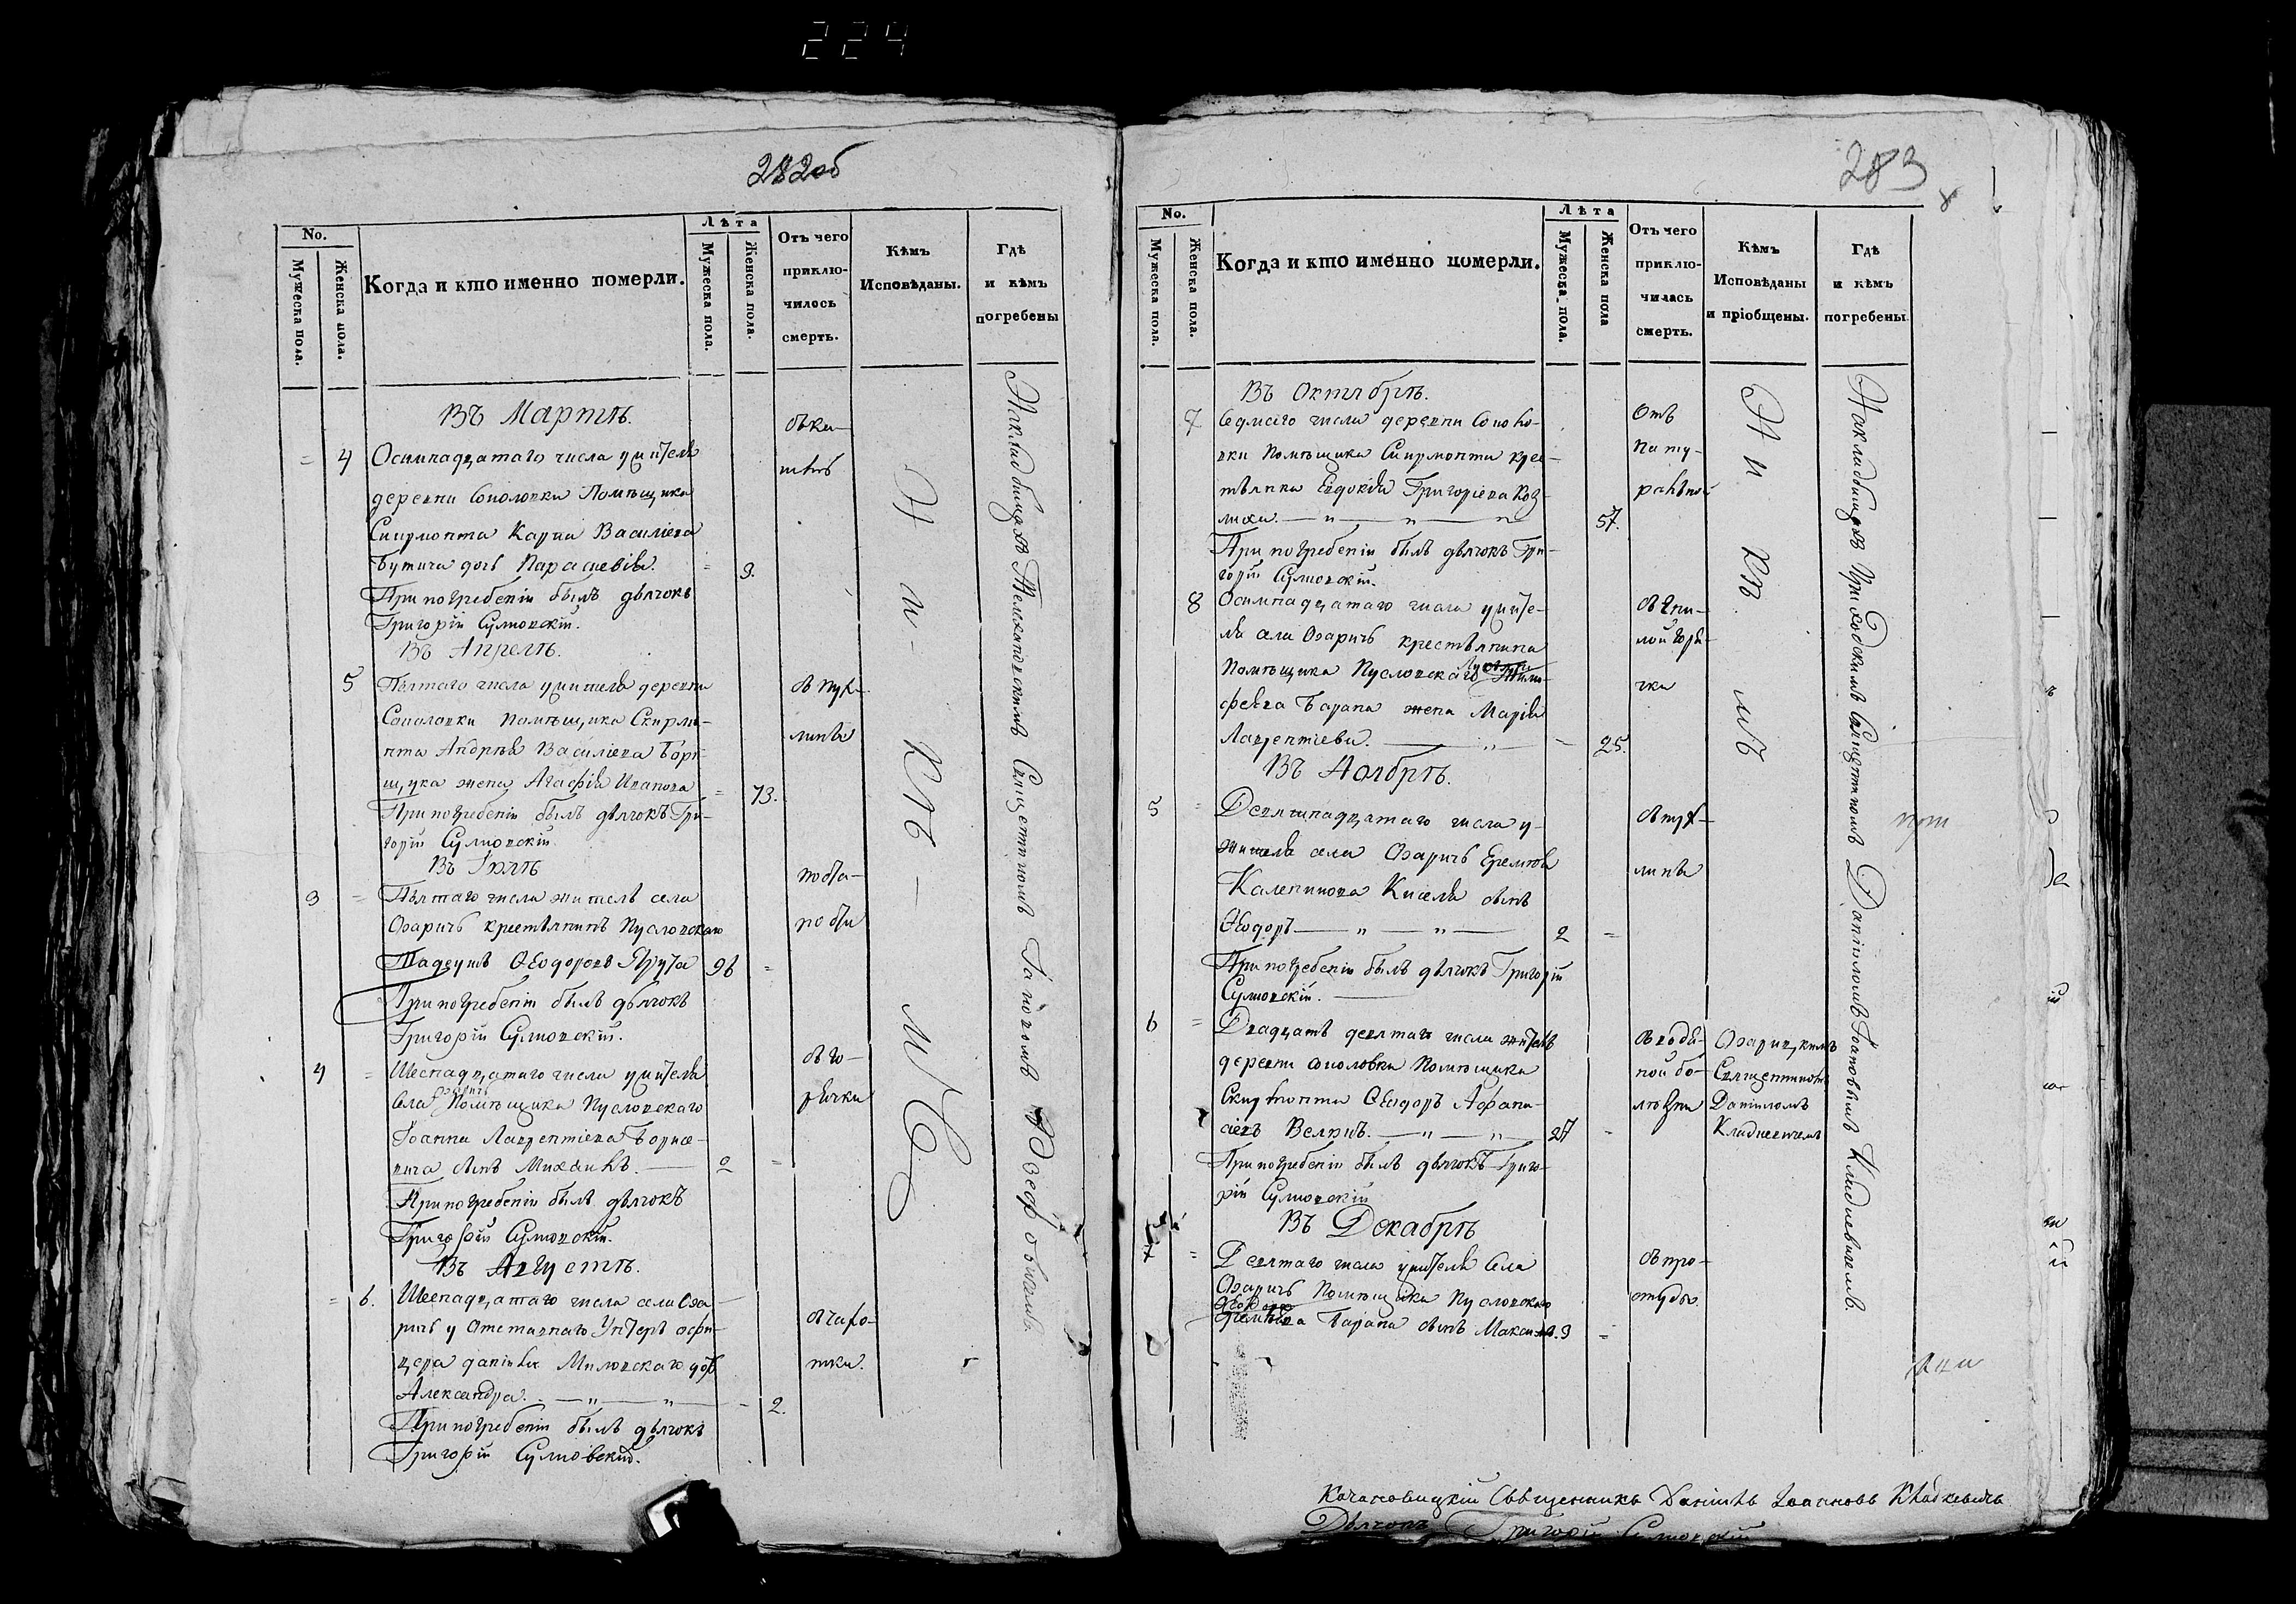 224
282об
No.
Мужеска пола.
Женска пола.
Когда и кто именно померли.
Лѣта
Мужеска пола.
Женска пола.
Отъ чего
приклю-
чилось
смерть.
Кѣмъ
Исповѣданы.
Гдѣ
и кѣмъ
погребены
Въ Мартѣ.
= 4 Осимнадцатаго числа у жителя
деревни Соколовки Помѣщика
Скирмонта Карпа Василіева
дочь Параскевія. = 9.
При погребеніи былъ дьячокъ
Григорій Сулковскій.
Въ Апрелѣ.
5 Пятаго числа у жителя деревни
Соколовки помѣщика Скирмо-
нта Андрѣя Василіева Бор-
щука жена Агафія Иванова = 73.
При погребеніи былъ дьячокъ Гри-
горій Сулковскій.
въ пух-
лины
Въ Іюлѣ
3 = Пятаго числа житель села
Озаричъ крестьянинъ Пусловскаго
Тадеушъ Ѳеодоровъ 96 =
При погребеніи былъ дьячокъ
Григорій Сулковскій.
4 = Шеснадцатаго числа у жителя
села Озаричъ Помѣщика Пусловскаго
Іоанна Лаврентіева Борисе-
вича сынъ Михаилъ. — 2 =
При погребеніи былъ дьячокъ
Григорій Сулковскій.
съ го-
рячки
Въ Августѣ.
= 6. Шеснадцатаго числа села Оза-
ричъ у Отставнаго Унтеръ офи-
цера Даніила дочь
Александра. — " — " — - 2.
При погребеніи былъ дьячокъ
Григорій Сулковскій.
Ни-кѣ-мъ
На кладбищѣ Священникомъ
283
No.
Мужеска пола.
Женска пола.
Когда и кто именно померли.
Лѣта
Мужеска пола.
Женска пола
Отъ чего
приклю-
чилась
смерть.
Кѣмъ
Исповѣданы
и пріобщены.
Гдѣ
и кѣмъ
погребены.
Въ Октябрѣ.
7 Седмаго числа деревни Соколо-
вки помѣщика Скирмонта крес-
тьянка Евдокія Григоріева Коз-
лиха. — " — " — " 57.
При погребеніи былъ дьячокъ Гри-
горій Сулковскій.
Отъ
нату-
ральной
8 Осимнадцатаго числа у жите-
ля села Озаричъ крестьянина
Помѣщика Пусловскаго
Барана жена Марія
Лаврентіева. — " — - 25.
съ гни-
лой горя-
чки
Въ Ноябрѣ.
5 = Девятнадцатаго числа у
жителя села Озаричъ Еремѣя
Каленикова Киселя сынъ
Ѳеодоръ — " — " — 2 =
При погребеніи былъ дьячокъ Григорій
Сулковскій. —
съ пух-
лины
6 = Двадцать девятаго числа житель
деревни Соколовки Помѣщика
Скирмонта Ѳеодоръ Афана-
сіевъ — " — " — 27 -
При погребеніи былъ дьячокъ Григо-
рій Сулковскій
съ водя-
ной бо-
лѣзни
Озарицкимъ
Священникомъ
Даніиломъ
Кладкевичемъ
Въ Декабрѣ
= Девятаго числа у жителя села
Озаричъ Помѣщика Пусловскаго
Барана сынъ Максимъ. 9 =
съ про-
студы.
Ни кѣ мъ
На кладбищѣ Приходскимъ Священникомъ Даніиломъ Іоановымъ Кладкевичемъ.
Качановицкій Священникъ Даніилъ Іоанновъ Кладкевичъ
Дьячокъ Григорій Сулковскій